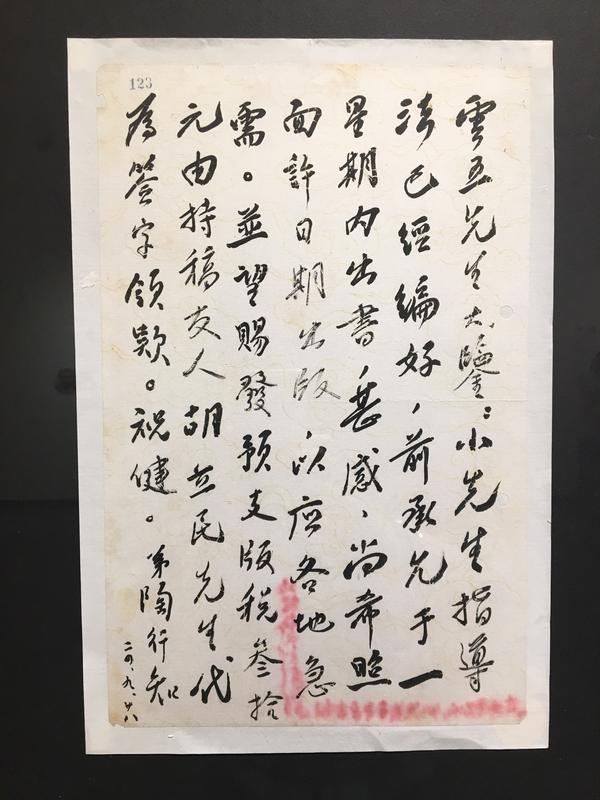 123
雲五先生大鑒：小先生指導
法已經編好，前承允于一
星期內出書，甚感，尚希照
面許日期出版，以應各地急
需。並望賜發預支版稅叁拾
元由持稿友人胡立民先生代
為簽字領款。祝
健。
弟陶行知
二〇、九、廿八